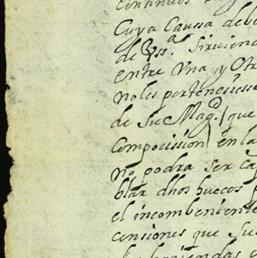 continuos
Cuya Caussa debe
de Vssª. Sirviend
entre Vna y Otr
noles pertenesiese
de Su Magd. (que
Compocission) en la
no podra ser ca
blar dhos huecos p
el incombeniente
censiones que Su